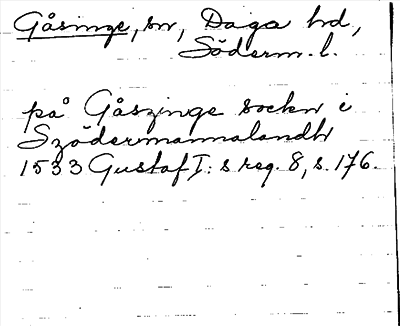 Gåsinge, sn, Daga hd,
Söderm. l.
på Gåszinge sockn i
Szödermannalandh
1533 Gustaf I:s reg. 8, s. 176.